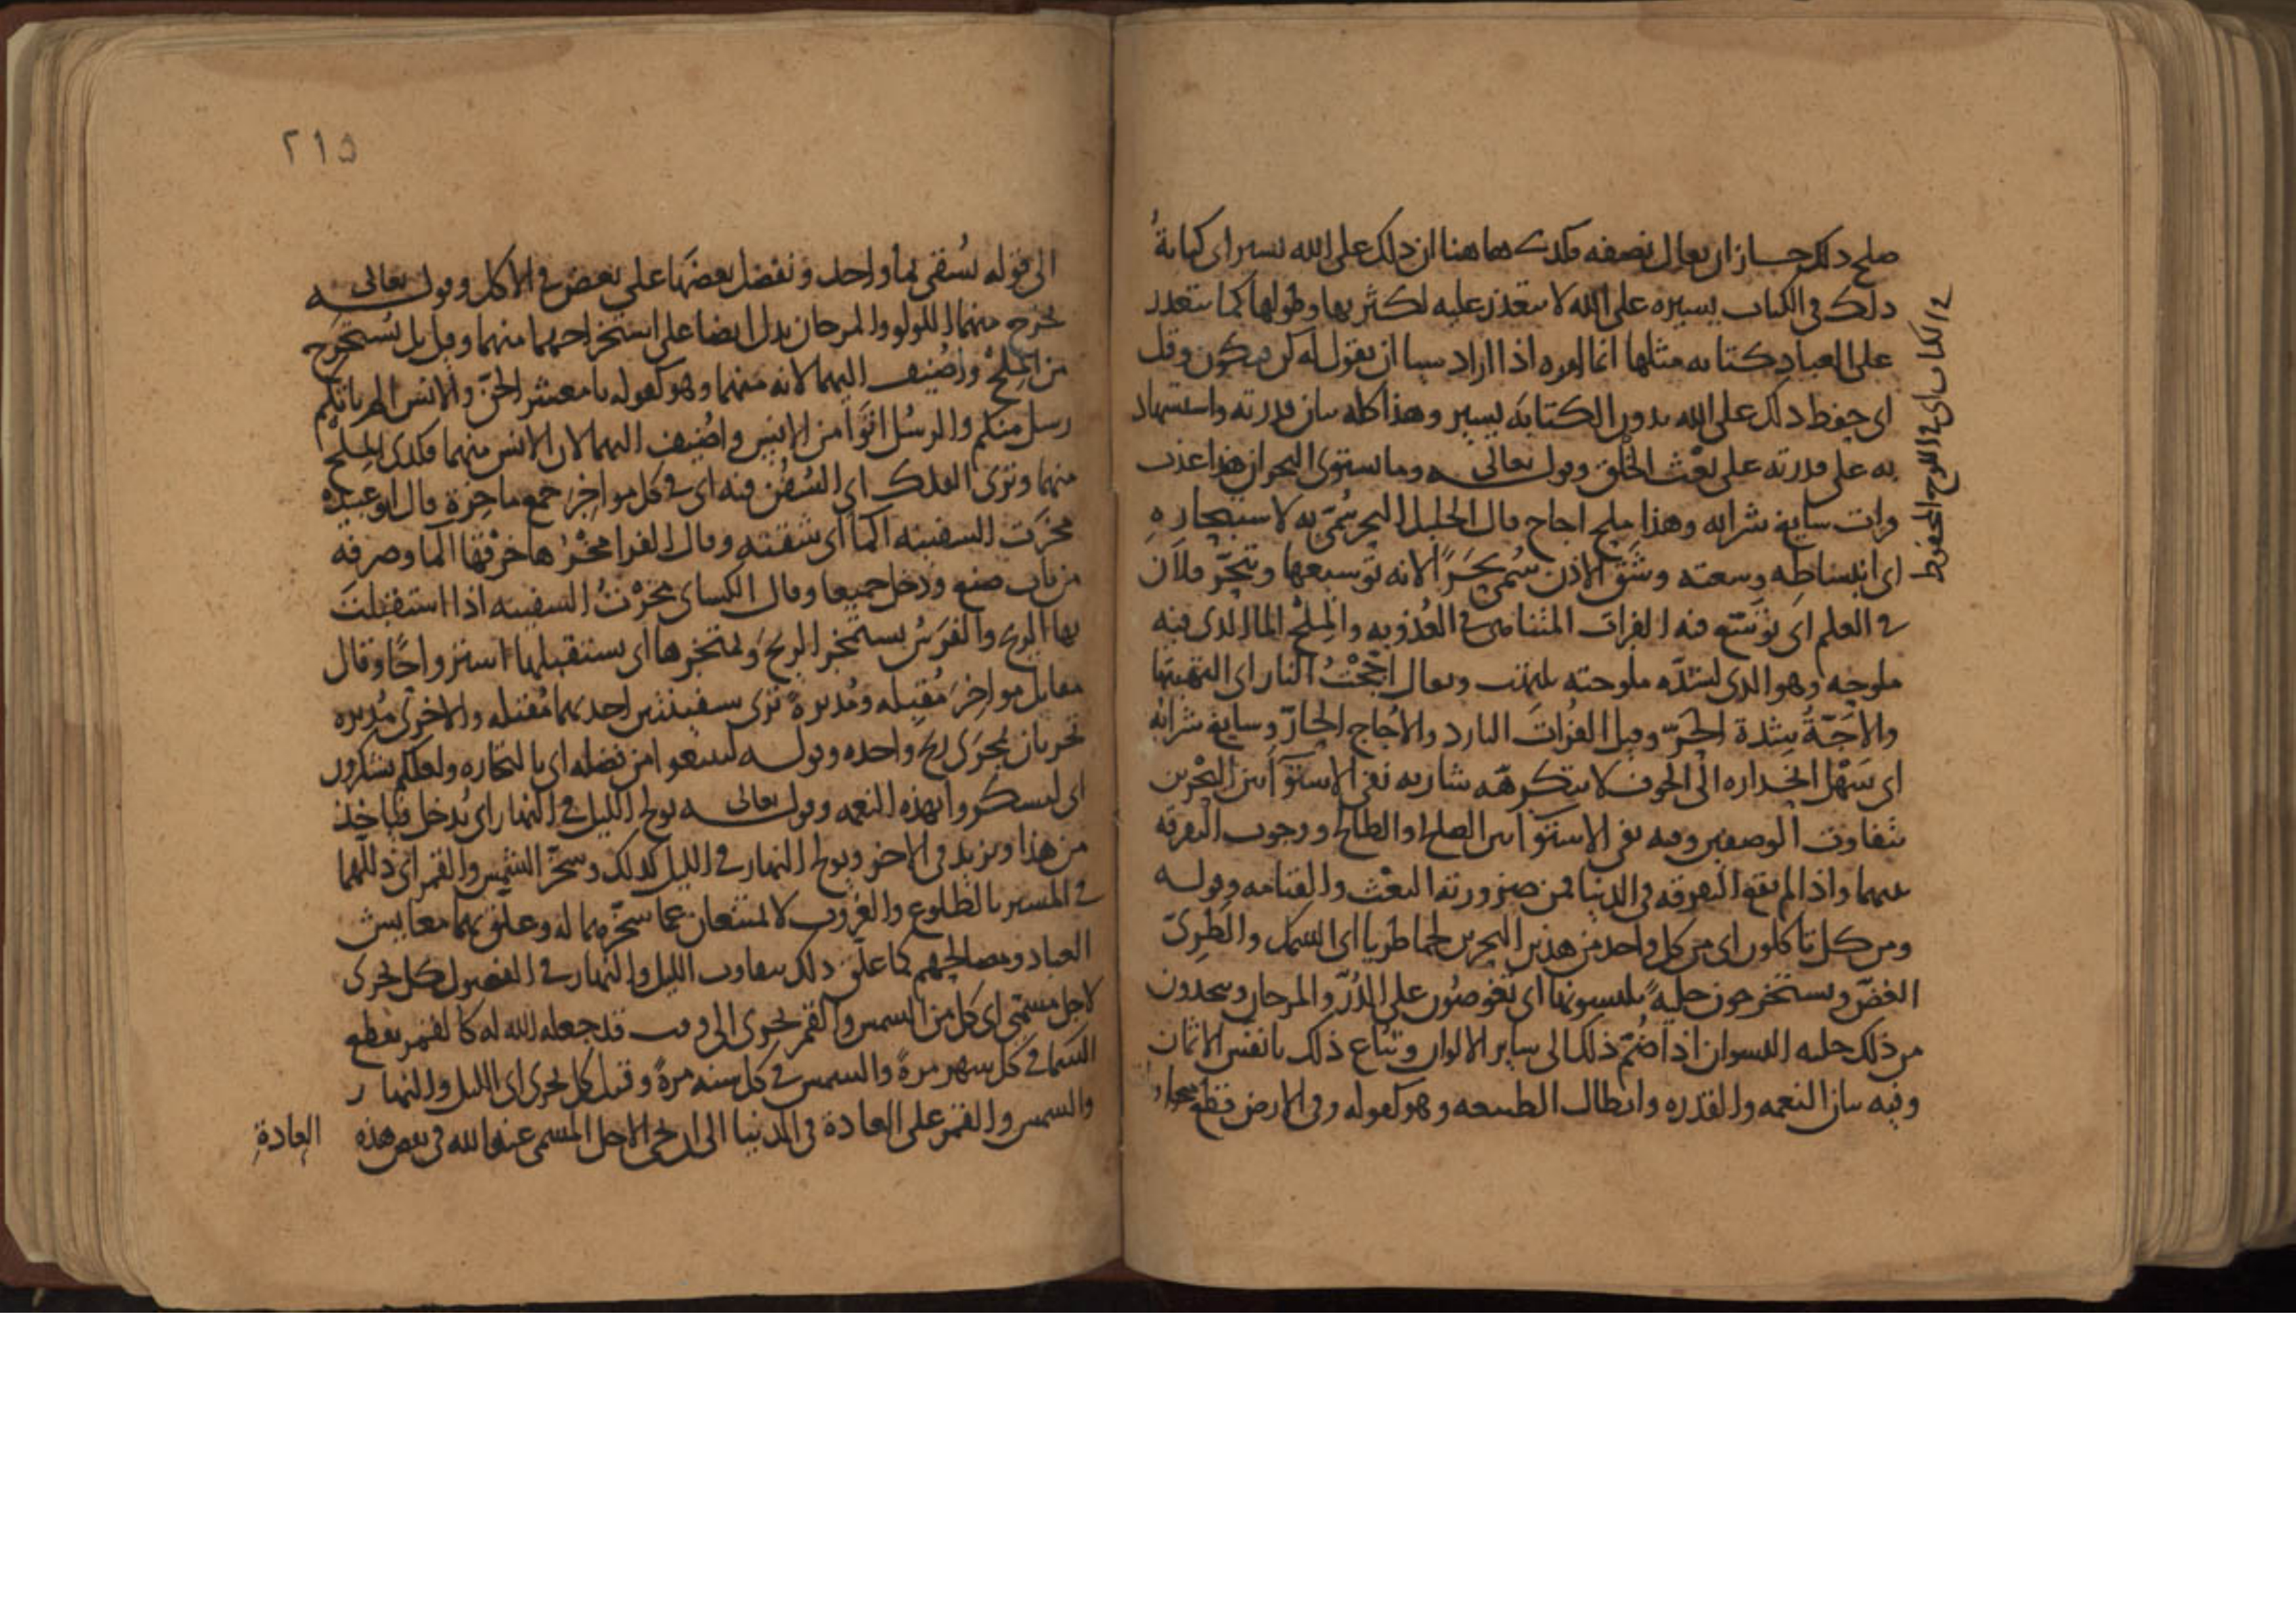 صلح ذلك جاز ان يقال نصفه فكذلك هاهنا ان ذلك على الله يسير اى كتابة
ذلك في الكتاب يسيره على الله لا يتعذر عليه لكثرتها وطولها كما يتعذر
على العباد كتابه مثلها انما امره اذا اراد شيا ان يقول له كن فيكون وقيل
اى حفظ ذلك على الله بدون الكتابه يسير وهذا كله بيان قدرته واستشهاد
به على قدرته على بعث الخلق وقوله تعالى وما يستوى البحران هذا عذب
فرات سايغ شرابه وهذا ملح اجاج قال الخليل البحر سُمّى به لاستبحاره
اى انبساطه وسعته وشق الاذن سُمى بحرًا لانه توسيعها وتبحّر فلان
في العلم اى توسّع فيه الفرات المتناهى في العُذوبه والمِلْح الما الذى فيه
ملوحه وهو الذى لشدّه ملوحته يلتهب ويقال اجّجْتُ النار اى الهبتها
والاجّةُ شدة الحرّ وقيل الفُراتَ البارد والاُجاج الحارّ وسايغ شرابه
اى سَهْل انحداره الى الجوف لا يتكرهه شاربه نفى الاستوآ بين البحرين
بتفاوت الوصفين وفيه نفى الاستوآ بين الصلح او الطالح ووجوب التفرقه
بينهما واذا لم تقع التفرقه في الدنيا فمن ضرورته البعْث والقيامه وقوله
ومن كل تاكلون اى من كل واحد من هذين البحرين لحما طريا اى السمك والطرِىّ
الغضّ وتستخرجون حليةً تلبسونها اى تغوصُون على الدُرّ والمرجان وتتخذون
من ذلك حليه النسوان اذا ضُمّ ذلك الى ساير الالوان وتُباع ذلك بانفس الاثمان
وفيه بيان النعمه والقدره وابطال الطبيعه وهو كقوله وفى الارض قطع متجاورات
في الكتاب اى في اللوح المحفوظ
٢١٥
الى قوله يُسقى بمآ واحد ونفضل بعضها على بعض في الاكل وقوله تعالى
يخرج منهما اللولو والمرجان يدل ايضا على استخراجهما منهما وقيل بل يُستخرج
من المِلْحْ واُضيف اليهما لانه منهما وهو كقوله يا معشر الجنّ والانس الم ياتكم
رسل منكم والرسُل اتوْا من الانس واُضيف اليهما لان الانس منهما فكذى المِلْح
منهما وترى الفلك اى السُفُن فيه اى في كل مواخِرَ جمع ماخِرَة قال ابو عبيده
مخرَت السفينه الما اى شقته وقال الفرا مخْرُها خرْقها الما وصرفه
من باب صنع ودخل جميعا وقال الكساى مخَرْتُ السفينه اذا استقبلت
بها الريح والفرسُ يستمخر الريحَ ويمتخرها اى يستقبلها استرواحًا وقال
مقاتل مواخِرَ مُقبله ومُدبرةً ترى سفينتين احديهما مُقبله والاخرى مُدبره
تجريان بجرى ريح واحده وقوله لتبتغوا من فضله اى بالتجاره ولعلكم تشكرون
اى لتشكروا بهذه النعمه وقوله تعالى يولج الليل في النهار اى يُدخل فياخذ
من هذا ويزيد فى الاخر ويولج النهار في الليل كذلك وسخّر الشمس والقمر اى ذللهما
في المسير بالطلوع والغروب لا يمتنعان عما سخّرهما له وعلق بهما معايش
العباد ومصالحهم كما علق ذلك بتفاوت الليل والنهار في الفصول كل يجرى
لاجل مسمّى اى كل من الشمس والقمر يجرى الى وقت قد جعله الله له كالقمر يقطع
السَمآ في كل شهر مرةً والشمس في كل سنه مرةً وقيل كل يجرى اى الليل والنهار
والشمس والقمر على العادة في الدنيا الى ان يجى الاجل المسمى عند الله فى نقض هذه
العادةِ